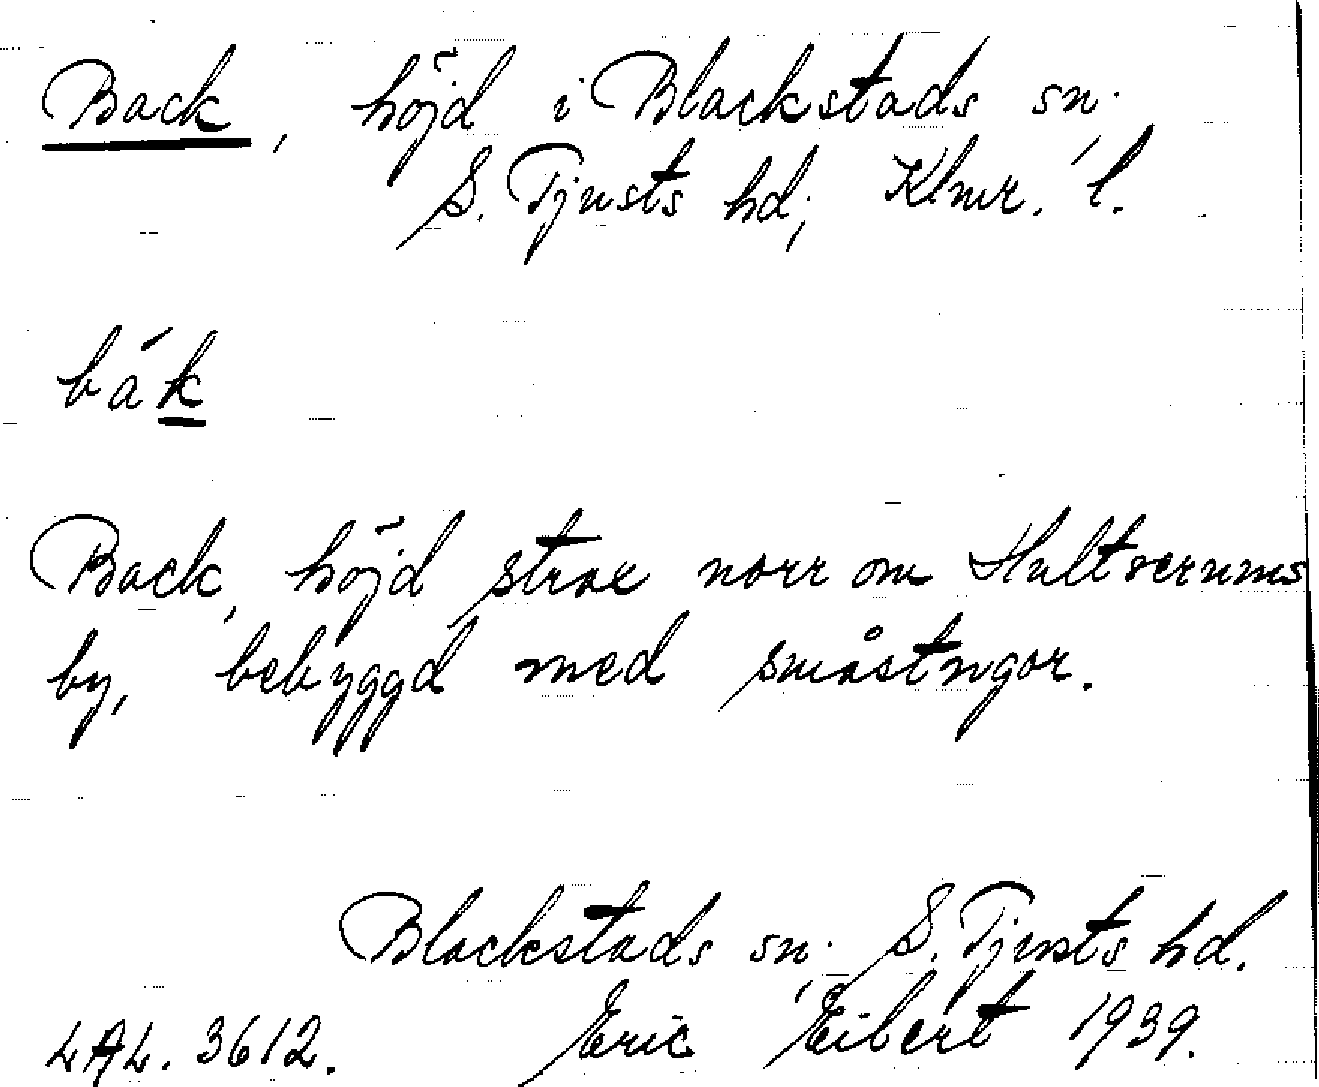 Back, höjd i Blackstads sn.
S. Tjusts hd; Klmr. l.
bák
Back, höjd strax norr om Hultserums
by, bebyggd med småstugor.
Blackstads sn. S. Tjusts hd.
LAL. 3612. Eric Eibert 1939.